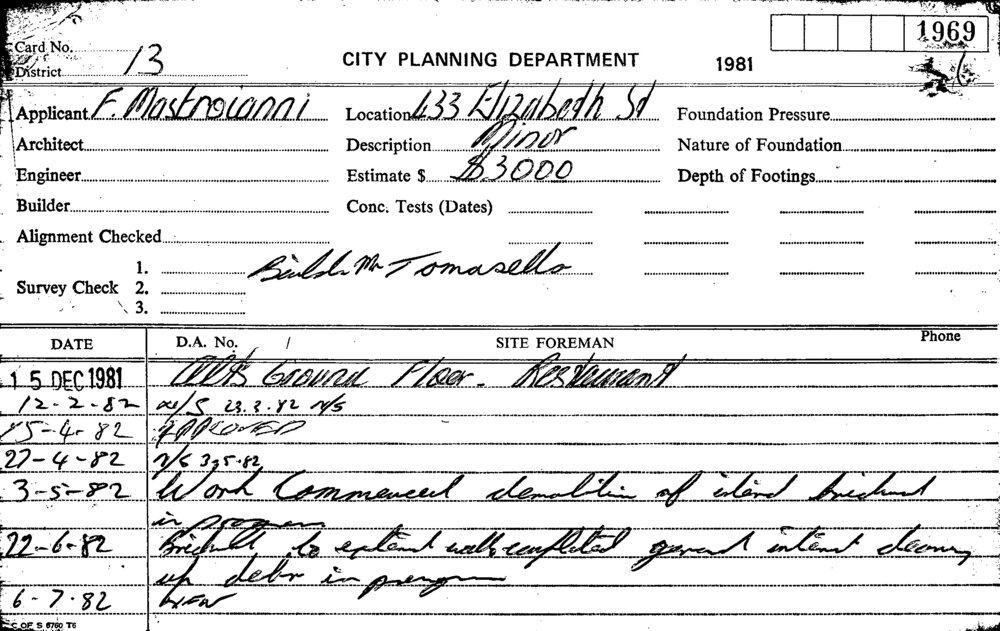 1969
Card No.
District 13
CITY PLANNING DEPARTMENT 1981
Applicant F. Mastroianni Location 433 Elizabeth St Foundation Pressure
Architect Description Minor Nature of Foundation
Engineer Estimate $ $3000 Depth of Footings
Builder Conc. Tests (Dates)
Alignment Checked
1.
Survey Check 2.
3.
Builder Mr Tomasello
DATE D.A. No. / SITE FOREMAN Phone
15 DEC 1981 Alts Ground Floor - Restaurant
12-2-82 23.2.82 N/S
15-4-82 APPROVED
27-4-82 N/S 3.5.82
3-5-82 Work Commenced demolition of brickwork
in progress
22-6-82 Brickwork to walls completed general cleaning
up in progress
6-7-82
C OF S 6760 T6